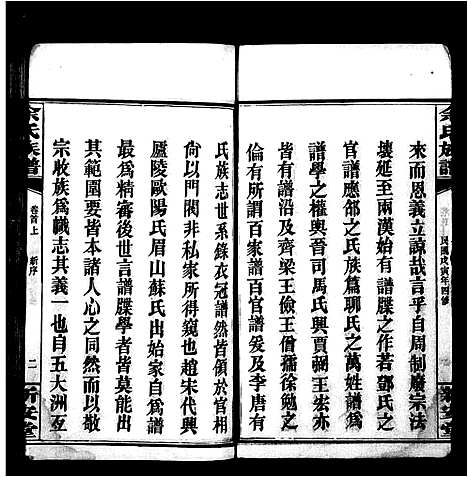 余氏族譜
民國戊寅年四修
新安堂
來而恩義立諒哉言乎自周制廢宗法
壞延至兩漢始有譜牒之作若鄧氏之
官譜應郃之氏族篇聊氏之萬姓譜而
譜學之權輿晉司馬氏興賈弼王宏亦
皆有譜及齊梁王儉王僧孺徐勉之
倫有所謂百家譜百官譜爰及李唐有
氏族志世系錄衣冠譜然皆領於官相
尙以門閥非私家所得窺也趙宋代興
廬陵歐陽氏眉山蘇氏出始家自爲譜
最爲精審後世言譜牒學者皆莫能出
其範圍要皆本諸人心之同然而以敬
宗收族爲幟志其義一也自五大洲互
余氏族譜
卷首上
新序
二
新安堂